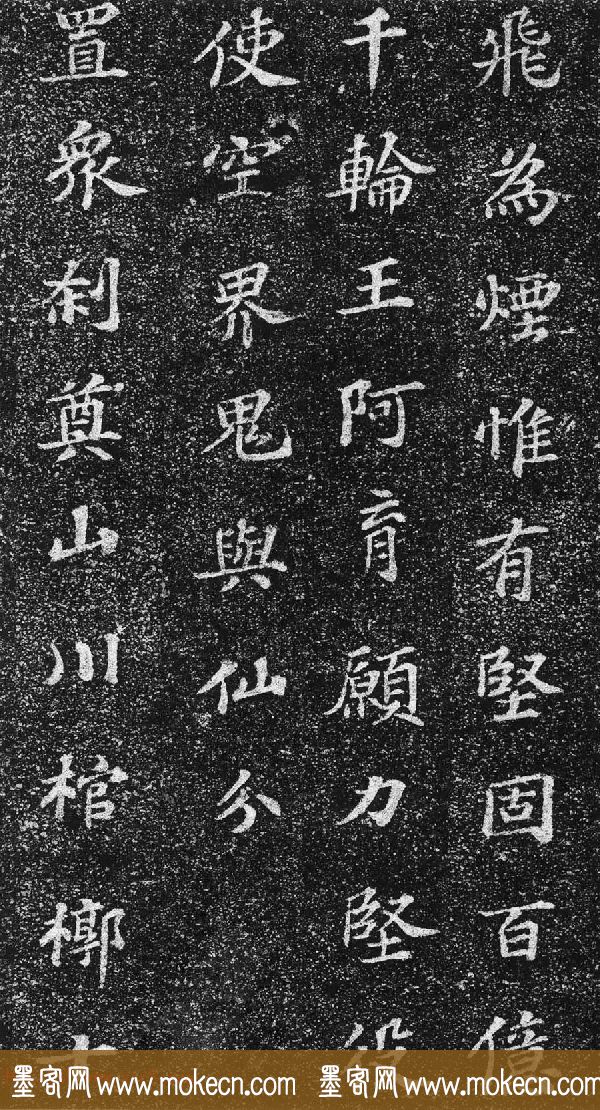 飛為煙惟有堅固百億
千輪王阿育願力堅役
使空界鬼與仙分
置眾刹奠山川棺槨十
墨客网 www.mokecn.com 墨客网 www.mokecn.com